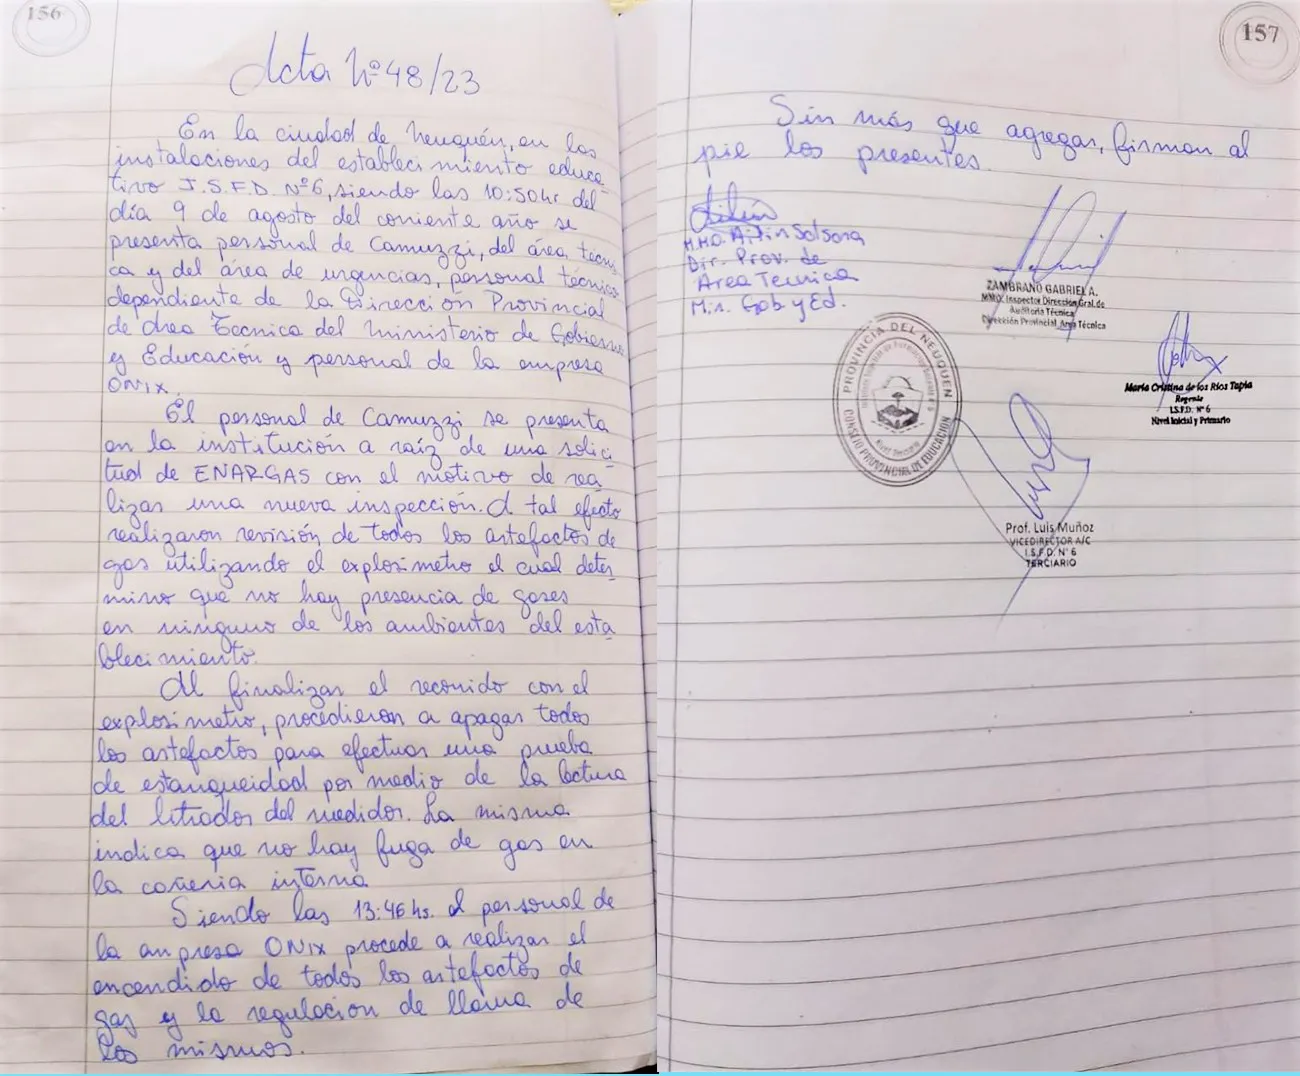 156
Acta Nº 48/23
En la ciudad de Neuquén, en las
instalaciones del establecimiento educa-
tivo I.S.F.D. Nº6, siendo las 10:50hr del
día 9 de agosto del corriente año se
presenta personal de Camuzzi, del área técni-
ca y del área de urgencias, personal técnico
dependiente de la Dirección Provincial
de Area Tecnica del Ministerio de Gobierno
y Educación y personal de la empresa
ONIX.
El personal de Camuzzi se presenta
en la institución a raíz de una solici-
tud de ENARGAS con el motivo de rea-
lizar una nueva inspección. A tal efecto
realizaron revisión de todos los artefactos de
gas utilizando el explosimetro el cual deter-
mino que no hay presencia de gases
en ninguno de los ambientes del esta-
blecimiento.
Al finalizar el recorrido con el
explosimetro, procedieron a apagar todos
los artefactos para efectuar una prueba
de estanqueidad por medio de la lectura
del litrados del medidor. La misma
indica que no hay fuga de gas en
la cañeria interna
Siendo las 13:46 hs. el personal de
la empresa ONIX procede a realizar el
encendido de todos los artefactos de
gas y la regulacion de llama de
los mismos.
157
Sin más que agregar, firman al
pie los presentes.
M.M.O. Aitin Solsona
Dir. Prov. de
Area Tecnica
Min. Gob y Ed.
ZAMBRANO GABRIEL A.
MMO. Inspector Direccion Gral. de
Auditoría Técnica
Dirección Provincial Area Técnica
María Cristina de los Ríos Tapia
Regente
I.S.F.D. Nº 6
Nivel Inicial y Primario
PROVINCIA DEL NEUQUEN
CONSEJO PROVINCIAL DE EDUCACIÓN
Prof. Luis Muñoz
VICEDIRECTOR A/C
I.S.F.D. N° 6
TERCIARIO